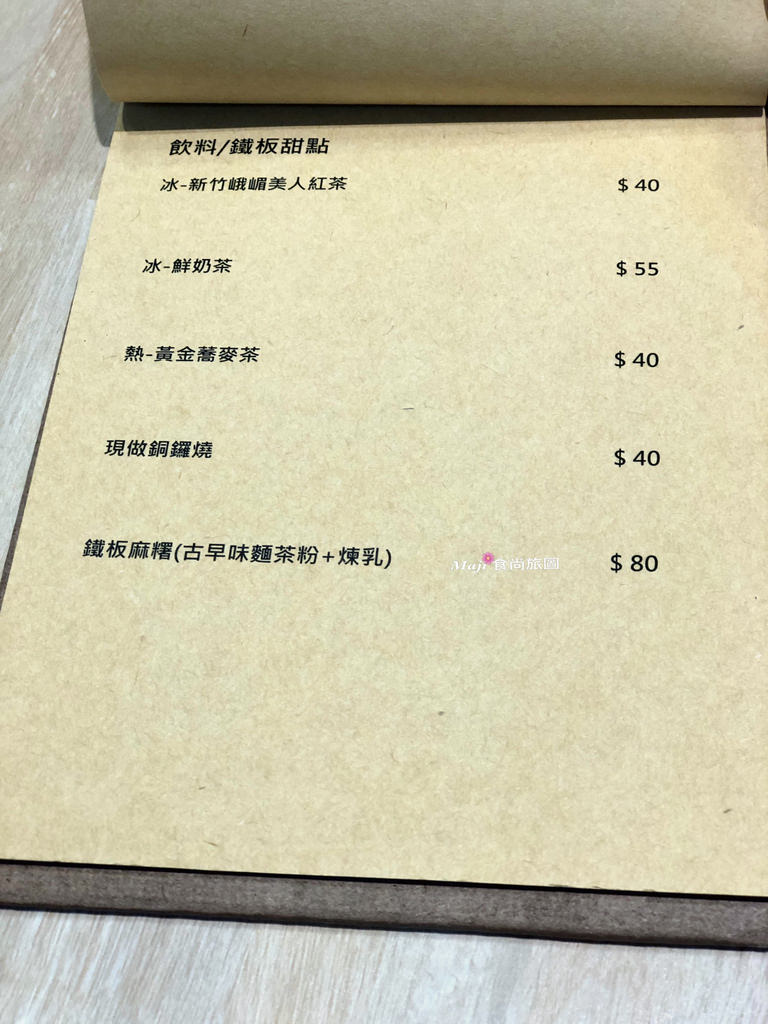 飲料/鐵板甜點
冰-新竹峨嵋美人紅茶 $ 40
冰-鮮奶茶 $ 55
熱-黃金蕎麥茶 $ 40
現做銅鑼燒 $ 40
鐵板麻糬(古早味麵茶粉+煉乳) $ 80
Maji 食尚旅圖